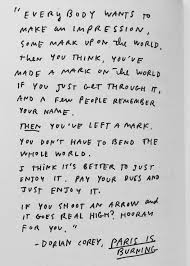 "EVERYBODY WANTS TO
MAKE AN IMPRESSION,
SOME MARK UPON THE WORLD.
THEN YOU THINK, YOU'VE
MADE A MARK ON THE WORLD
IF YOU JUST GET THROUGH IT,
AND A FEW PEOPLE REMEMBER
YOUR NAME.
THEN YOU'VE LEFT A MARK.
YOU DON'T HAVE TO BEND THE
WHOLE WORLD.
I THINK IT'S BETTER TO JUST
ENJOY IT. PAY YOUR DUES AND
JUST ENJOY IT.
IF YOU SHOOT AN ARROW AND
IT GOES REAL HIGH? HOORAY
FOR YOU."
-DORIAN COREY, PARIS IS
BURNING